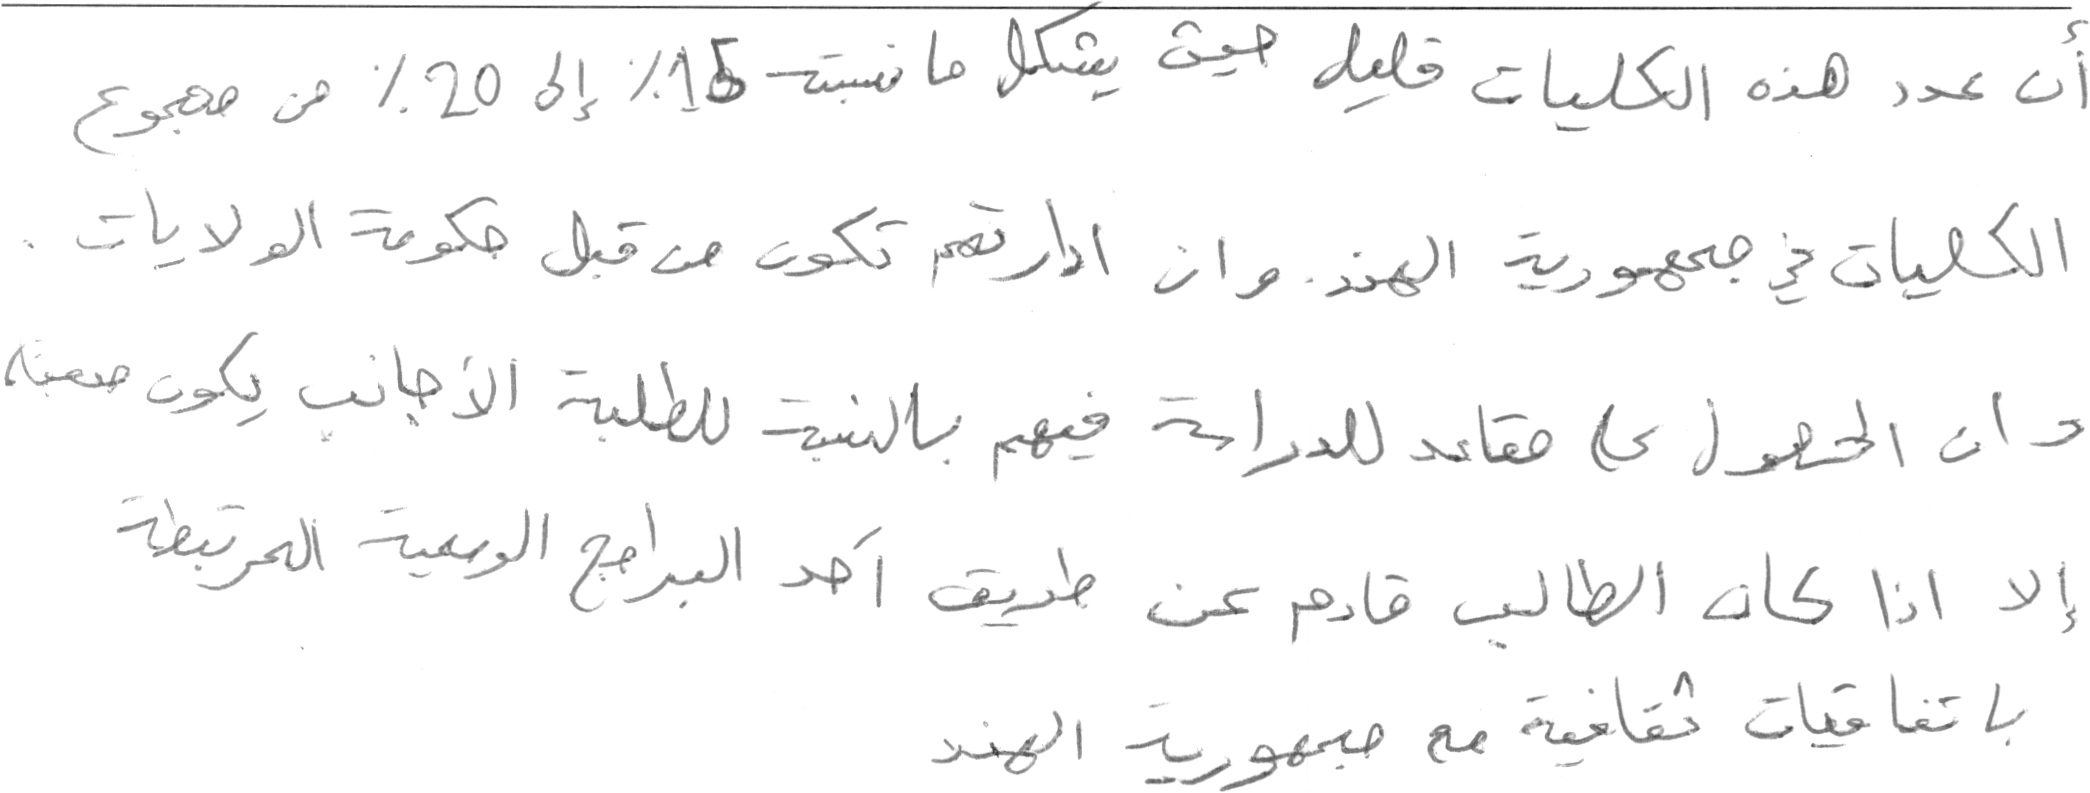 أن عدد هذه الكليات قليل حيث يشكل ما نسبته 15٪ إلى 20٪ من مجموع
الكليات في جمهورية الهند. وان ادارتهم تكون من قبل حكومة الولايات.
وان الحصول على مقاعد للدراسة فيهم بالنسبة للطلبة الأجانب يكون صعبة
إلا اذا كان الطالب قادم عن طريق أحد البرامج الرسمية المرتبطة
باتفاقيات ثقافية مع جمهورية الهند